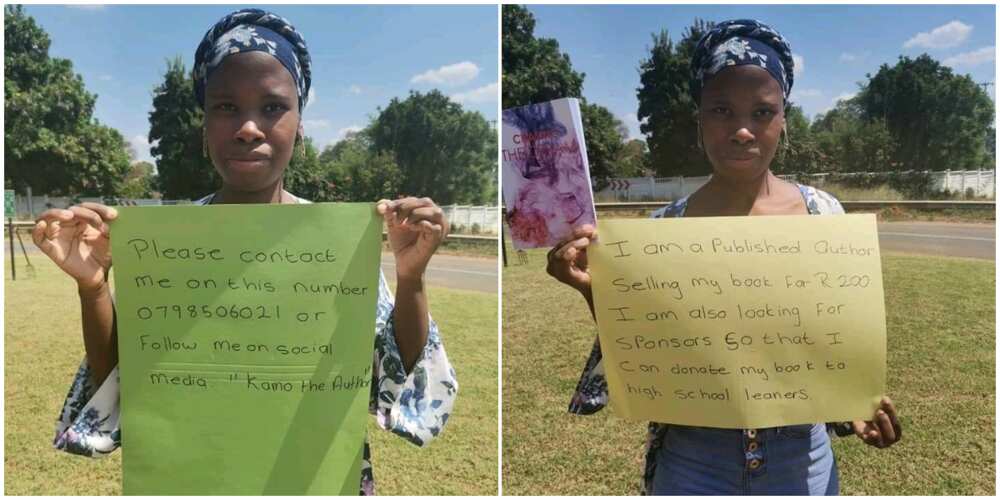 Please contact
me on this number
0798506021 or
Follow me on social
media "Kamo the Author"
THE
I am a Published author
Selling my book for R 200.
I am also looking for
sponsors so that I
can donate my book to
high school leaners.